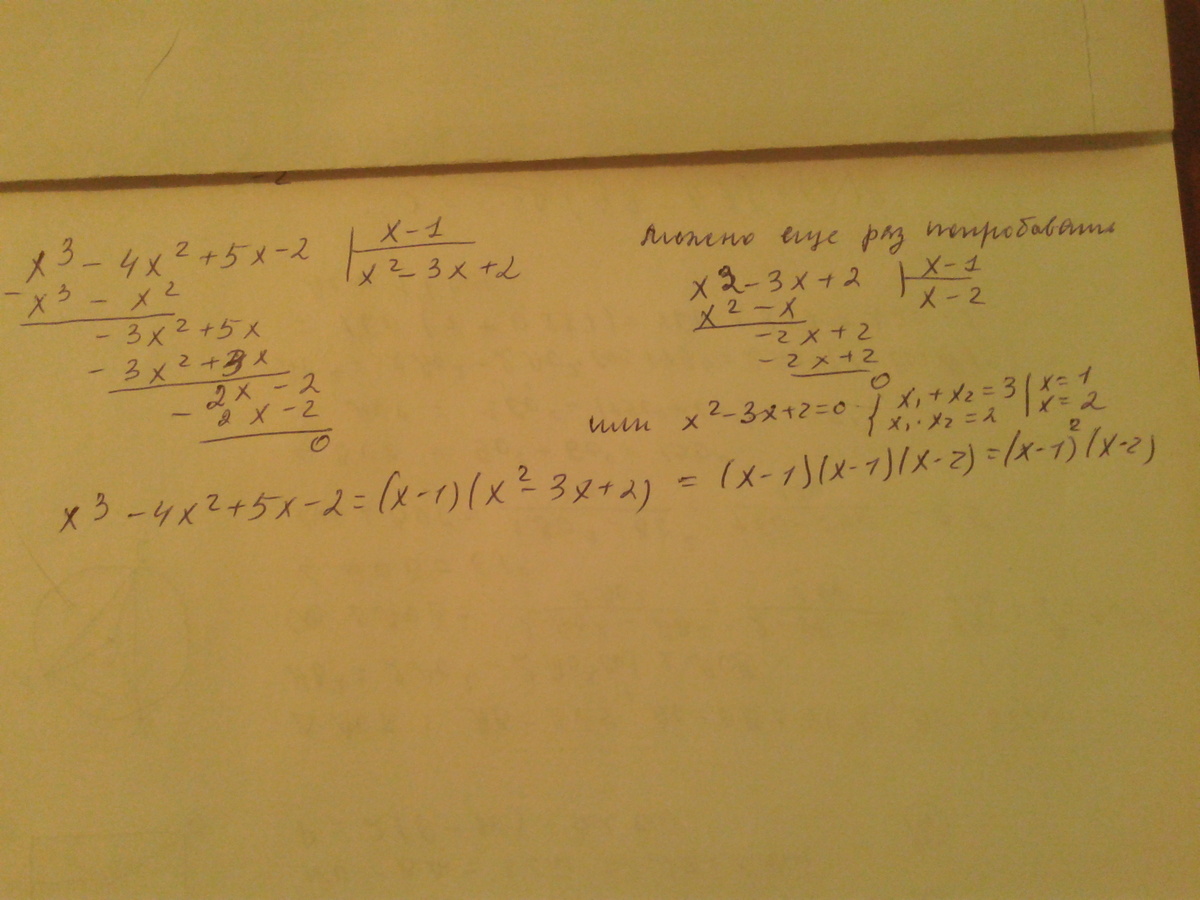 x³ - 4x² + 5x - 2 | x - 1
- x³ - x² | x² - 3x + 2
- 3x² + 5x
- 3x² + 3x
2x - 2
- 2x - 2
0
можно еще раз попробовать
x² - 3x + 2 | x - 1
x² - x | x - 2
- 2x + 2
- 2x + 2
0
или x² - 3x + 2 = 0 { x₁ + x₂ = 3 | x = 1
x₁ · x₂ = 2 | x = 2
x³ - 4x² + 5x - 2 = (x - 1)(x² - 3x + 2) = (x - 1)(x - 1)(x - 2) = (x - 1)²(x - 2)